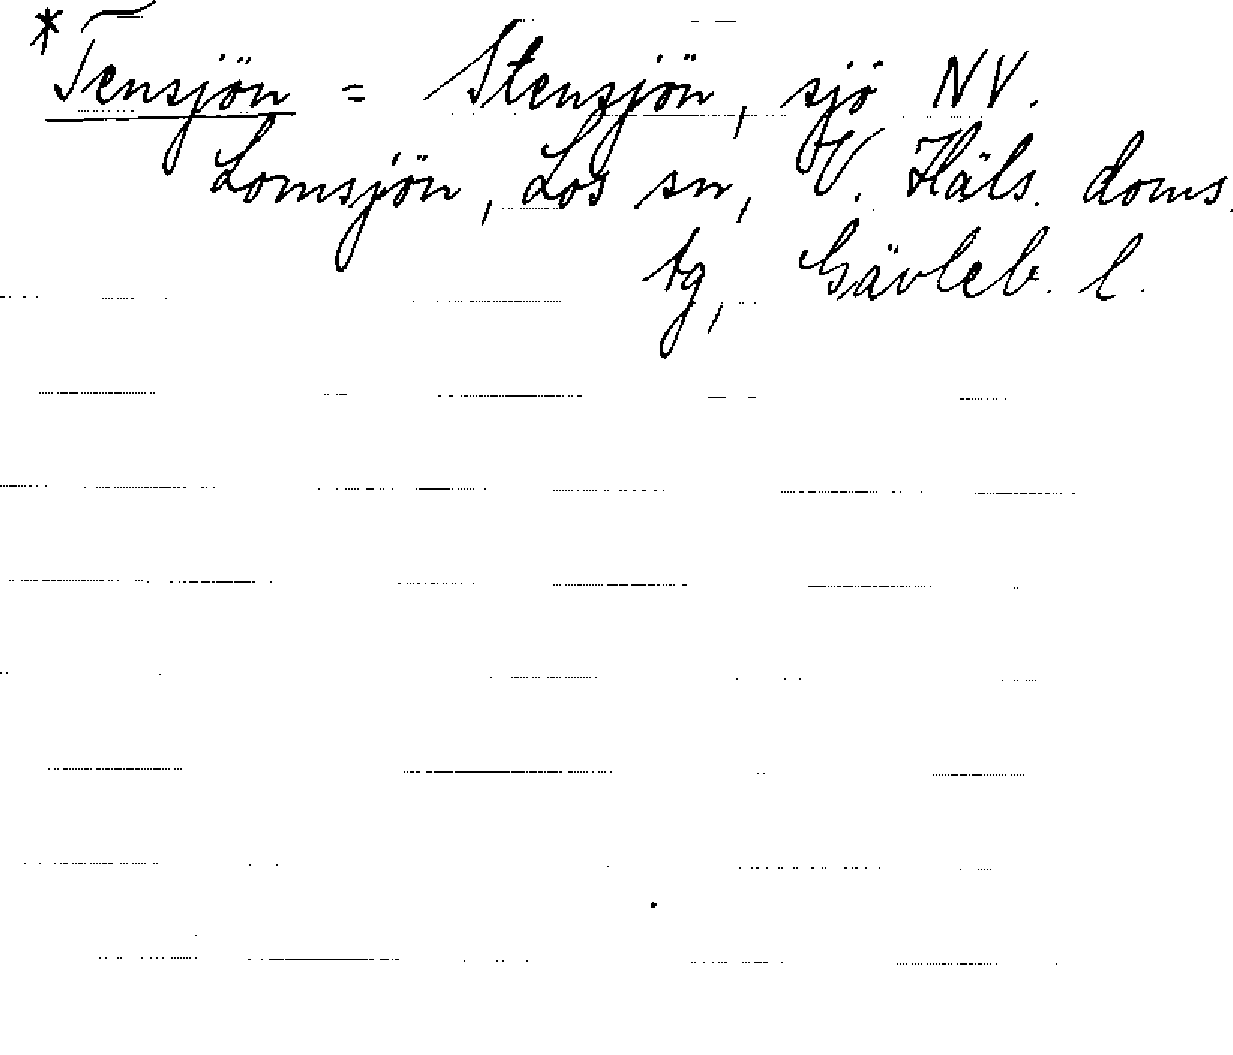 *Tensjön = Stensjön, sjö NV.
Lomsjön, Los sn, V. Häls. doms.
tg, Gävleb. l.